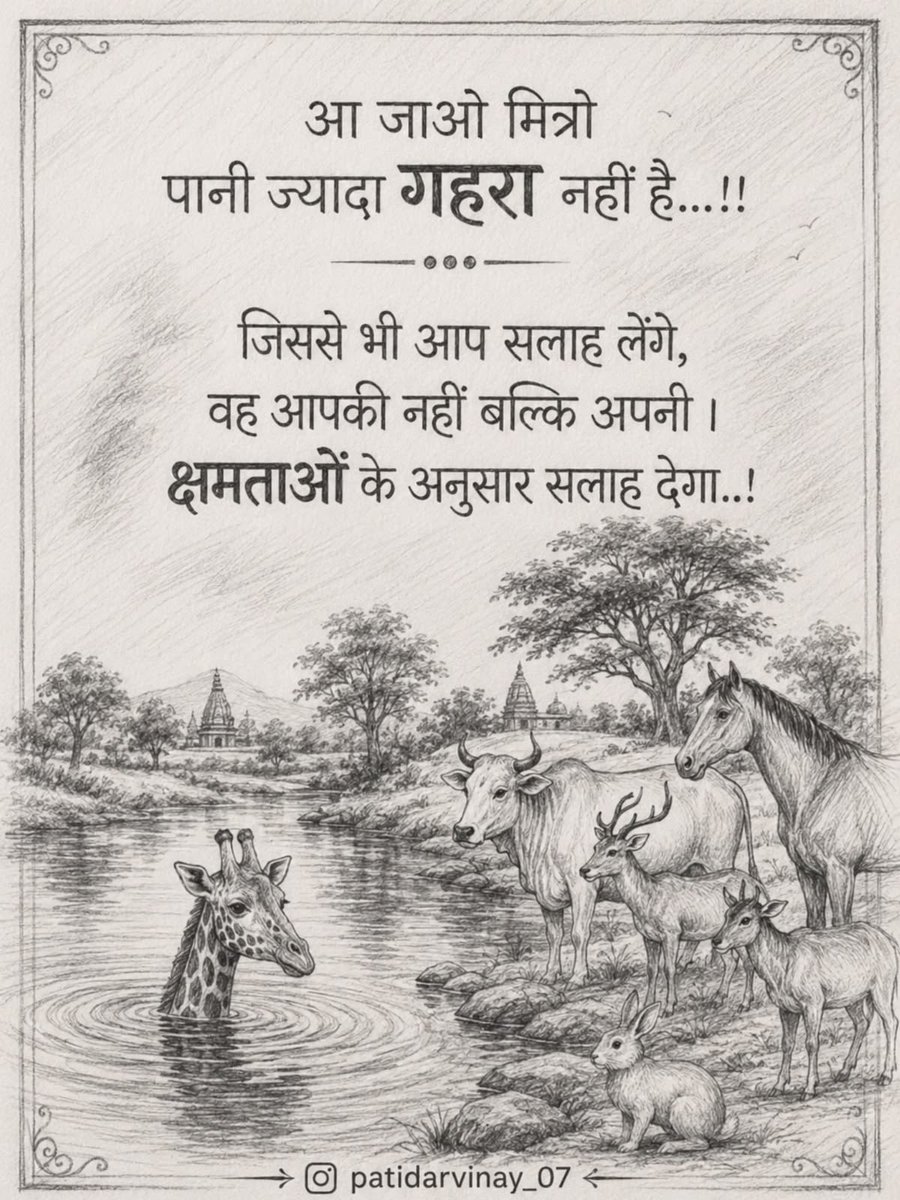 आ जाओ मित्रो
पानी ज्यादा गहरा नहीं है...!!
जिससे भी आप सलाह लेंगे,
वह आपकी नहीं बल्कि अपनी ।
क्षमताओं के अनुसार सलाह देगा..!
patidarvinay_07